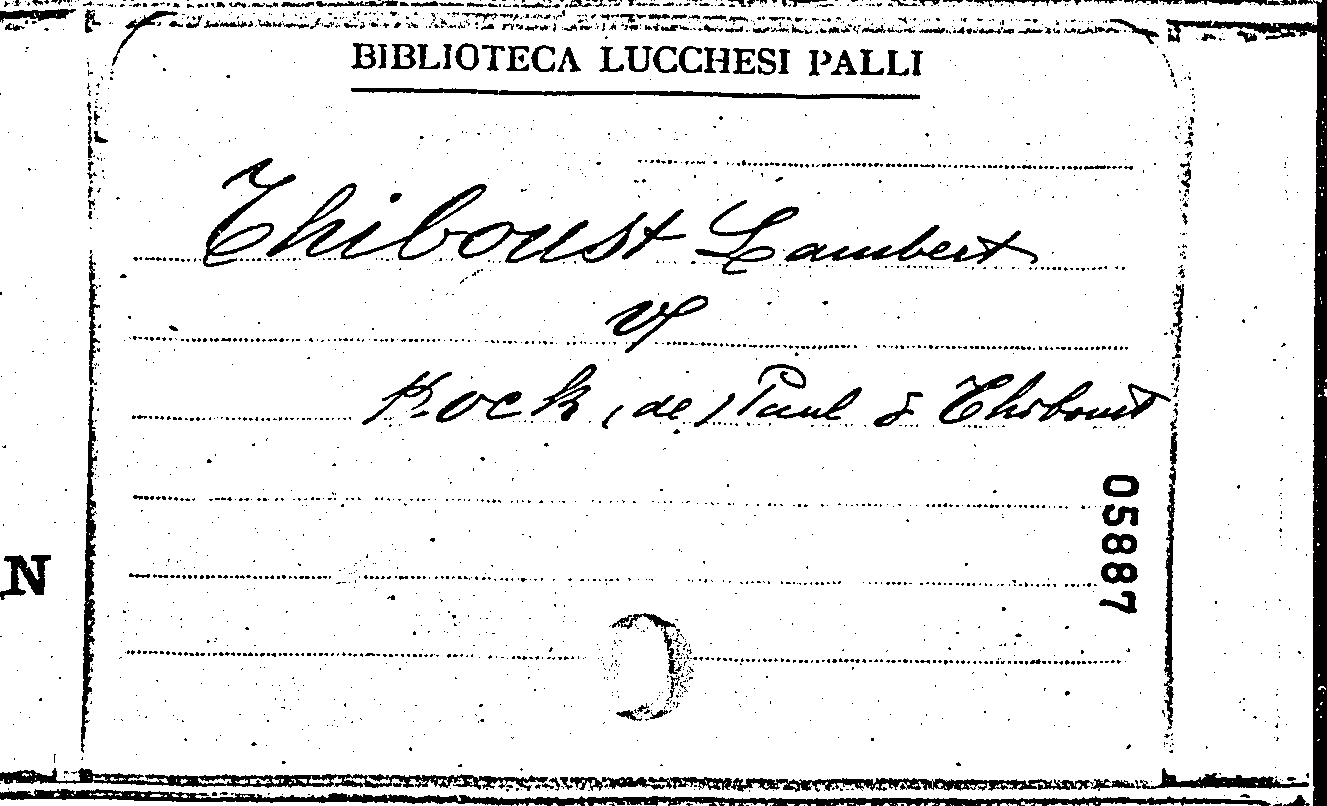 BIBLIOTECA LUCCHESI PALLI
Thiboust Lambert
V
Kock (de) Paul & Thiboust
05887
N